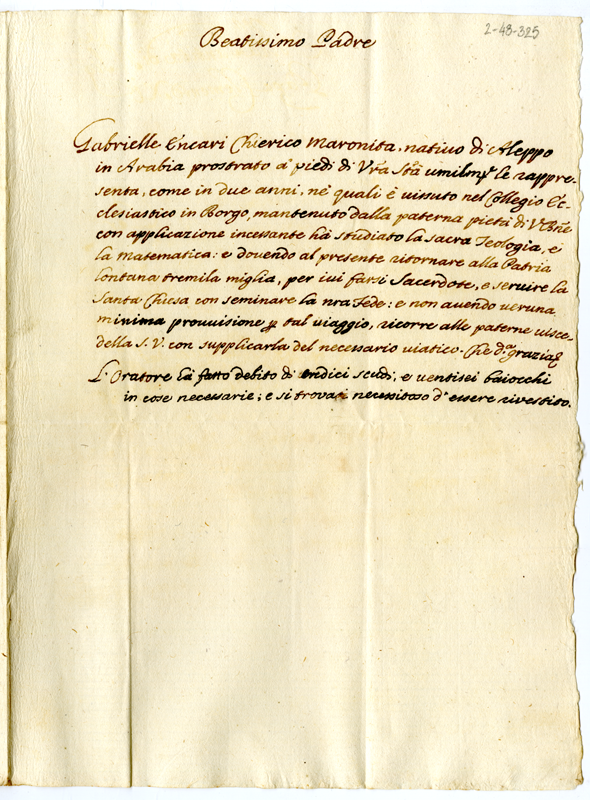 2-48-325
Beatissimo Padre
Gabrielle Encari Chierico Maronita, nativo di Aleppo
in Arabia prostrato a' piedi di Vra Stà umilmte le rappre-
senta, come in due anni, ne' quali è vissuto nel Collegio Ec-
clesiastico in Borgo, mantenuto dalla paterna pietà di V. Bne
con applicazione incessante ha studiato la sacra Teologia, e
la matematica: e dovendo al presente ritornare alla Patria
lontana tremila miglia, per ivi farsi Sacerdote, e servire la
Santa Chiesa con seminare la nra Fede: e non avendo veruna
minima provvisione p tal viaggio, ricorre alle paterne visce-
della S. V. con supplicarla del necessario viatico. Che da grazia
L'Oratore hà fatto debito di undici scudi, e ventisei baiocchi
in cose necessarie; e si trova necessitoso d'essere rivestito.